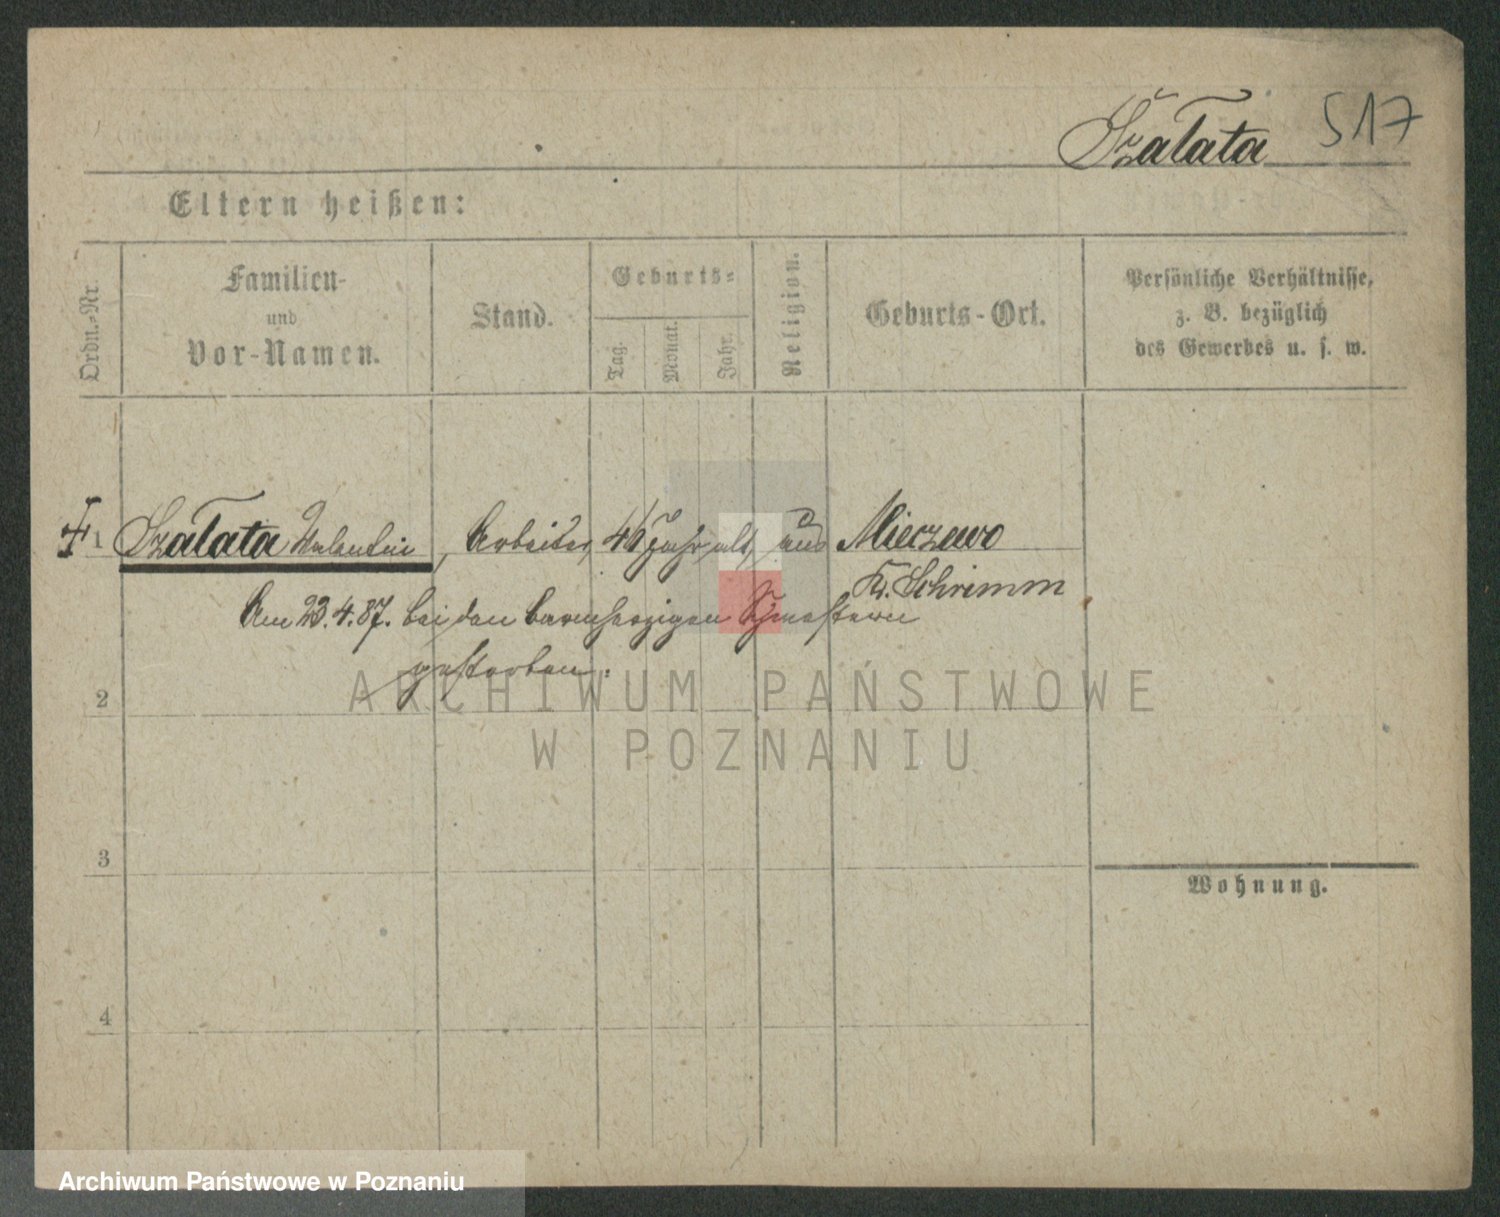 Szatata 517
Eltern heißen:
Ordn.-Nr.
Familien-
und
Vor-Namen.
Stand.
Geburts-
Tag.
Monat.
Jahr.
Religion.
Geburts-Ort.
Persönliche Verhältnisse,
z. B. bezüglich
des Gewerbes u. s. w.
1 Szatata Valentin, Arbeiter, 46 Jahr alt, aus Mieczewo
Kr. Schrimm
Am 23.4.87. bei den barmherzigen Schwestern
gestorben.
2
ARCHIWUM PAŃSTWOWE
W POZNANIU
3
Wohnung.
4
Archiwum Państwowe w Poznaniu